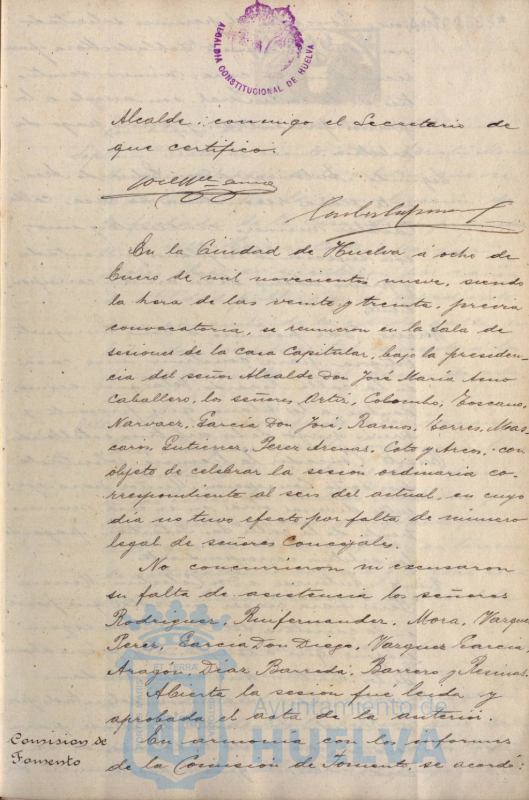 ALCALDIA CONSTITUCIONAL DE HUELVA
Alcalde: conmigo el Secretario de
que certifico.
En la Ciudad de Huelva á ocho de
Enero de mil novecientos nueve, siendo
la hora de las veinte y treinta, previa
convocatoria, se reunieron en la Sala de
sesiones de la casa Capitular, bajo la presiden-
cia del señor Alcalde Don José María Amo
Caballero, los señores Colombo, Toscano,
Narvaez, García Don José, Ramos, Torres, Mas-
caros, Gutierrez, Perez Arenas, Coto y Arcos, con
objeto de celebrar la sesión ordinaria co-
rrespondiente al seis del actual, en cuyo
dia no tuvo efecto por falta de número
legal de señores Concejales.
No concurrieron ni escusaron
su falta de asistencia los señores
Rodriguez, Ruifernandez, Mora, Vazquez
Perez, García Don Diego, Vazquez García,
Aragón, Diaz Barreda, Barrero y
Abierta la sesión fué leida y
aprobada el acta de la anterior.
Comision de
Fomento
En armonia con los informes
de la Comisión de Fomento, se acordó:
Ayuntamiento de
HUELVA